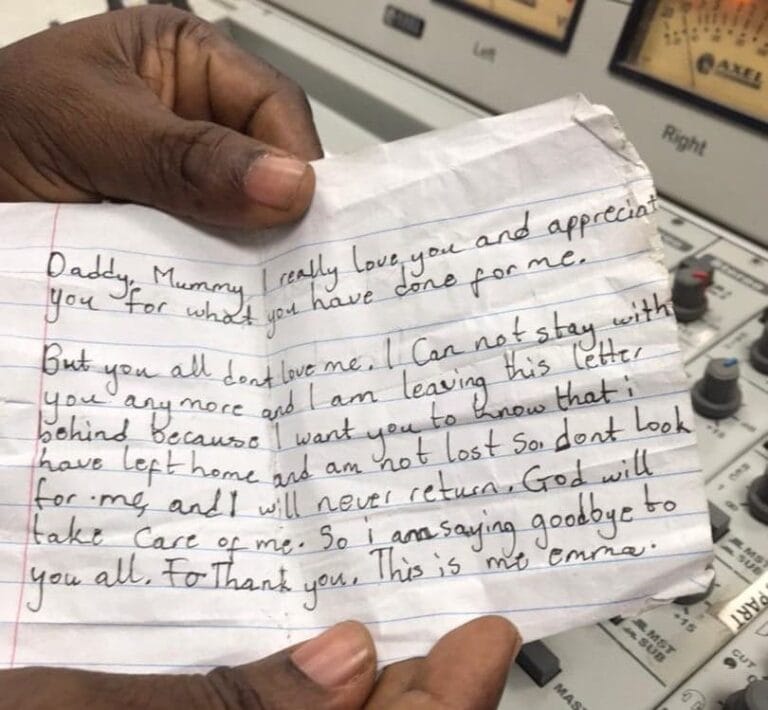 AXEL
Left
AXEL
Right
Daddy, Mummy, I really love you and appreciat
you for what you have done for me.
But you all dont love me. I Can not stay with
you any more and I am leaving this letter
behind because I want you to know that i
have left home and am not lost so, dont Look
for me, and I will never return. God will
take care of me. So i am saying goodbye to
you all. Fo Thank you. This is me emma.
+15
MST
SUB
MAS
PART
CUT
MST
SUB